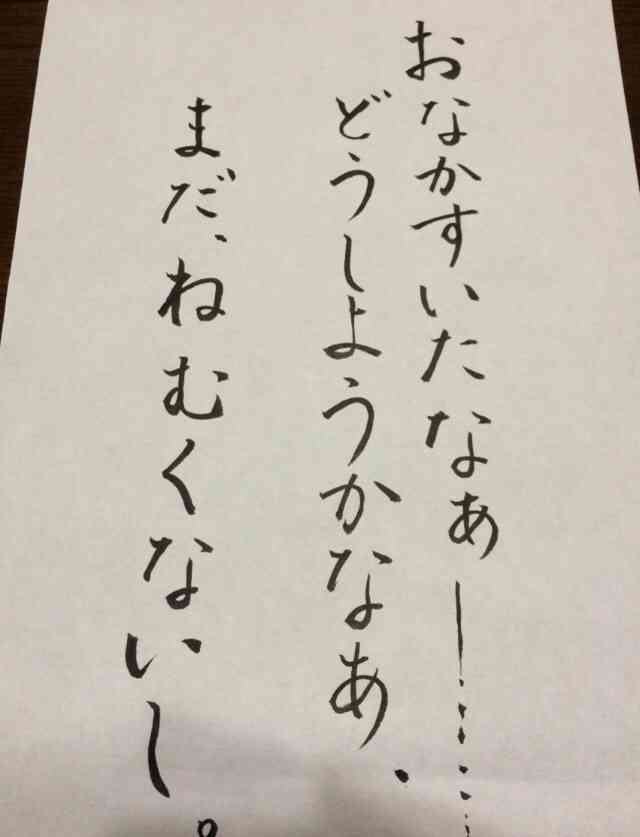 おなかすいたなぁー……
どうしようかなあ、
まだ、ねむくないし。